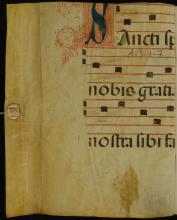 Sancti sp
A.3.1-7
nobis grati
nostra sibi fa